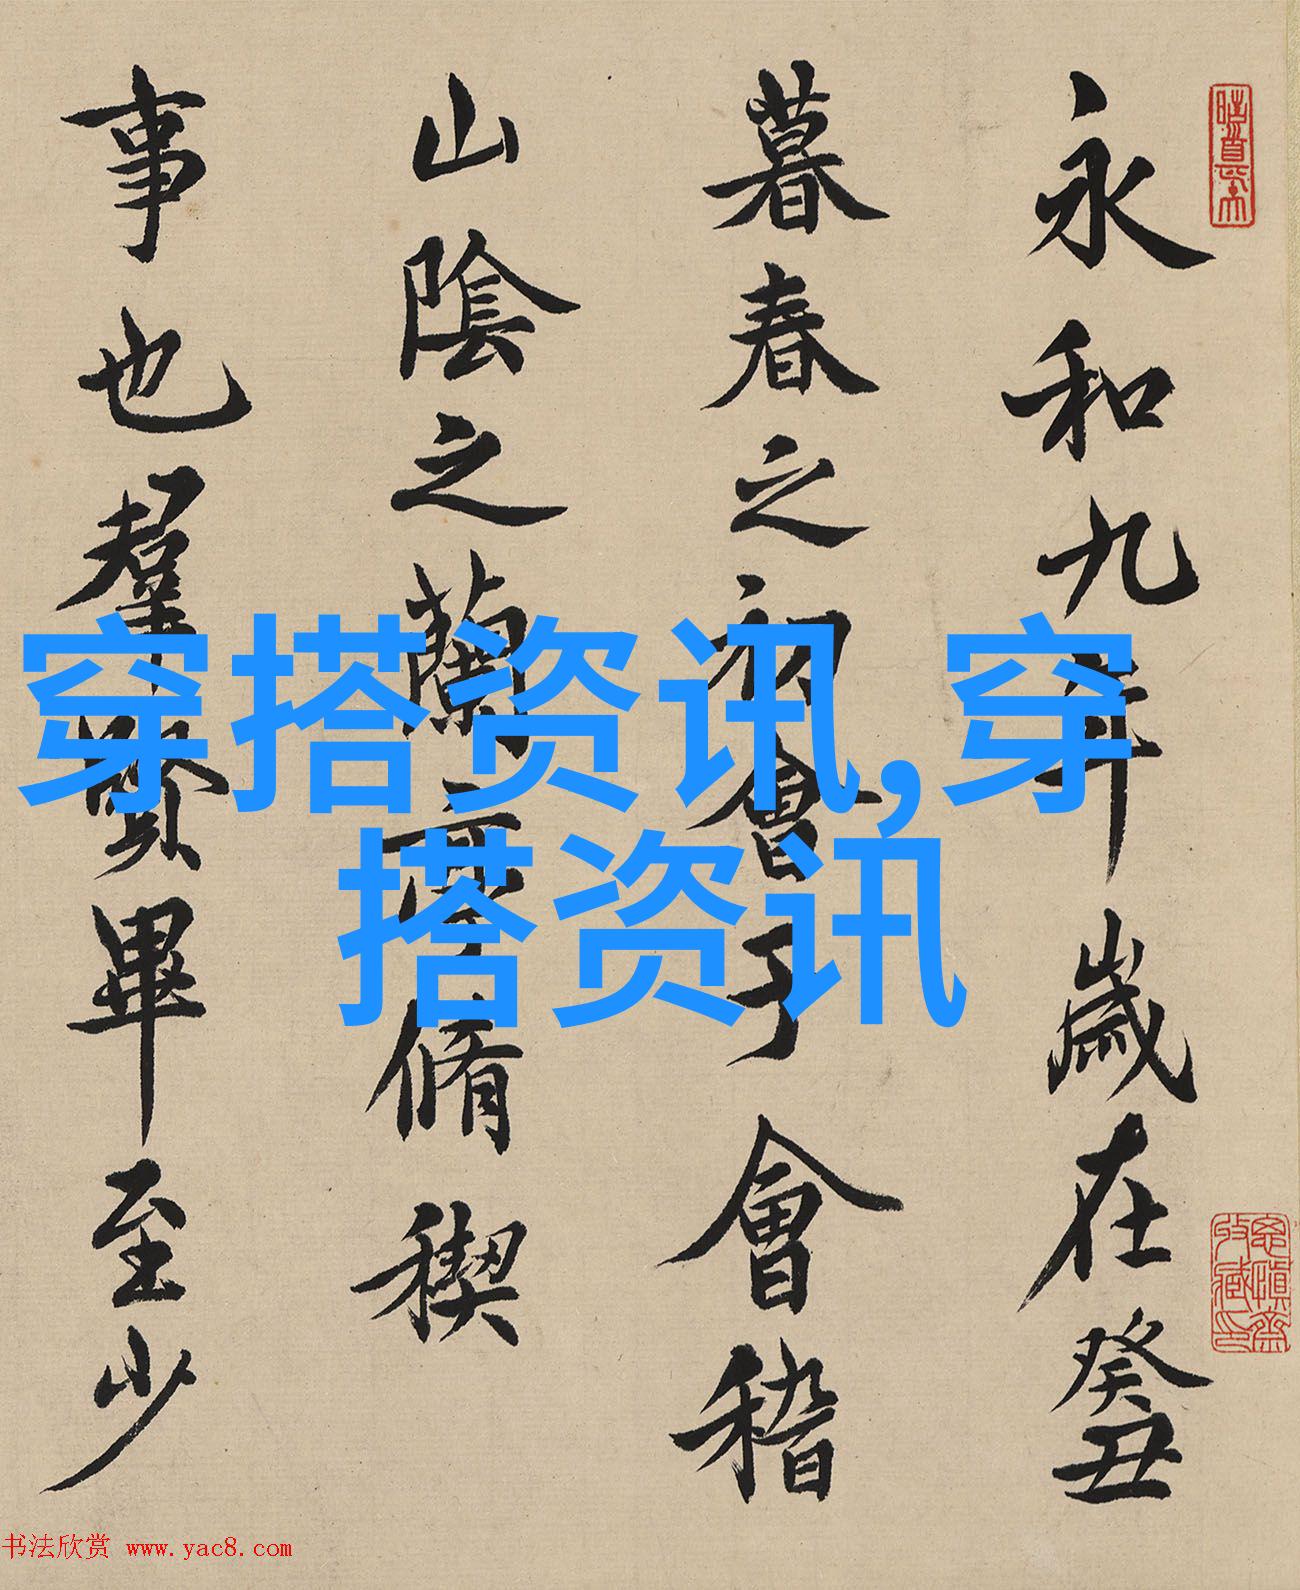 永和九年歲在癸丑
暮春之初會于會稽
山陰之蘭亭脩稧
事也羣賢畢至少
穿搭资讯,穿
搭资讯
书法欣赏 www.yac8.com